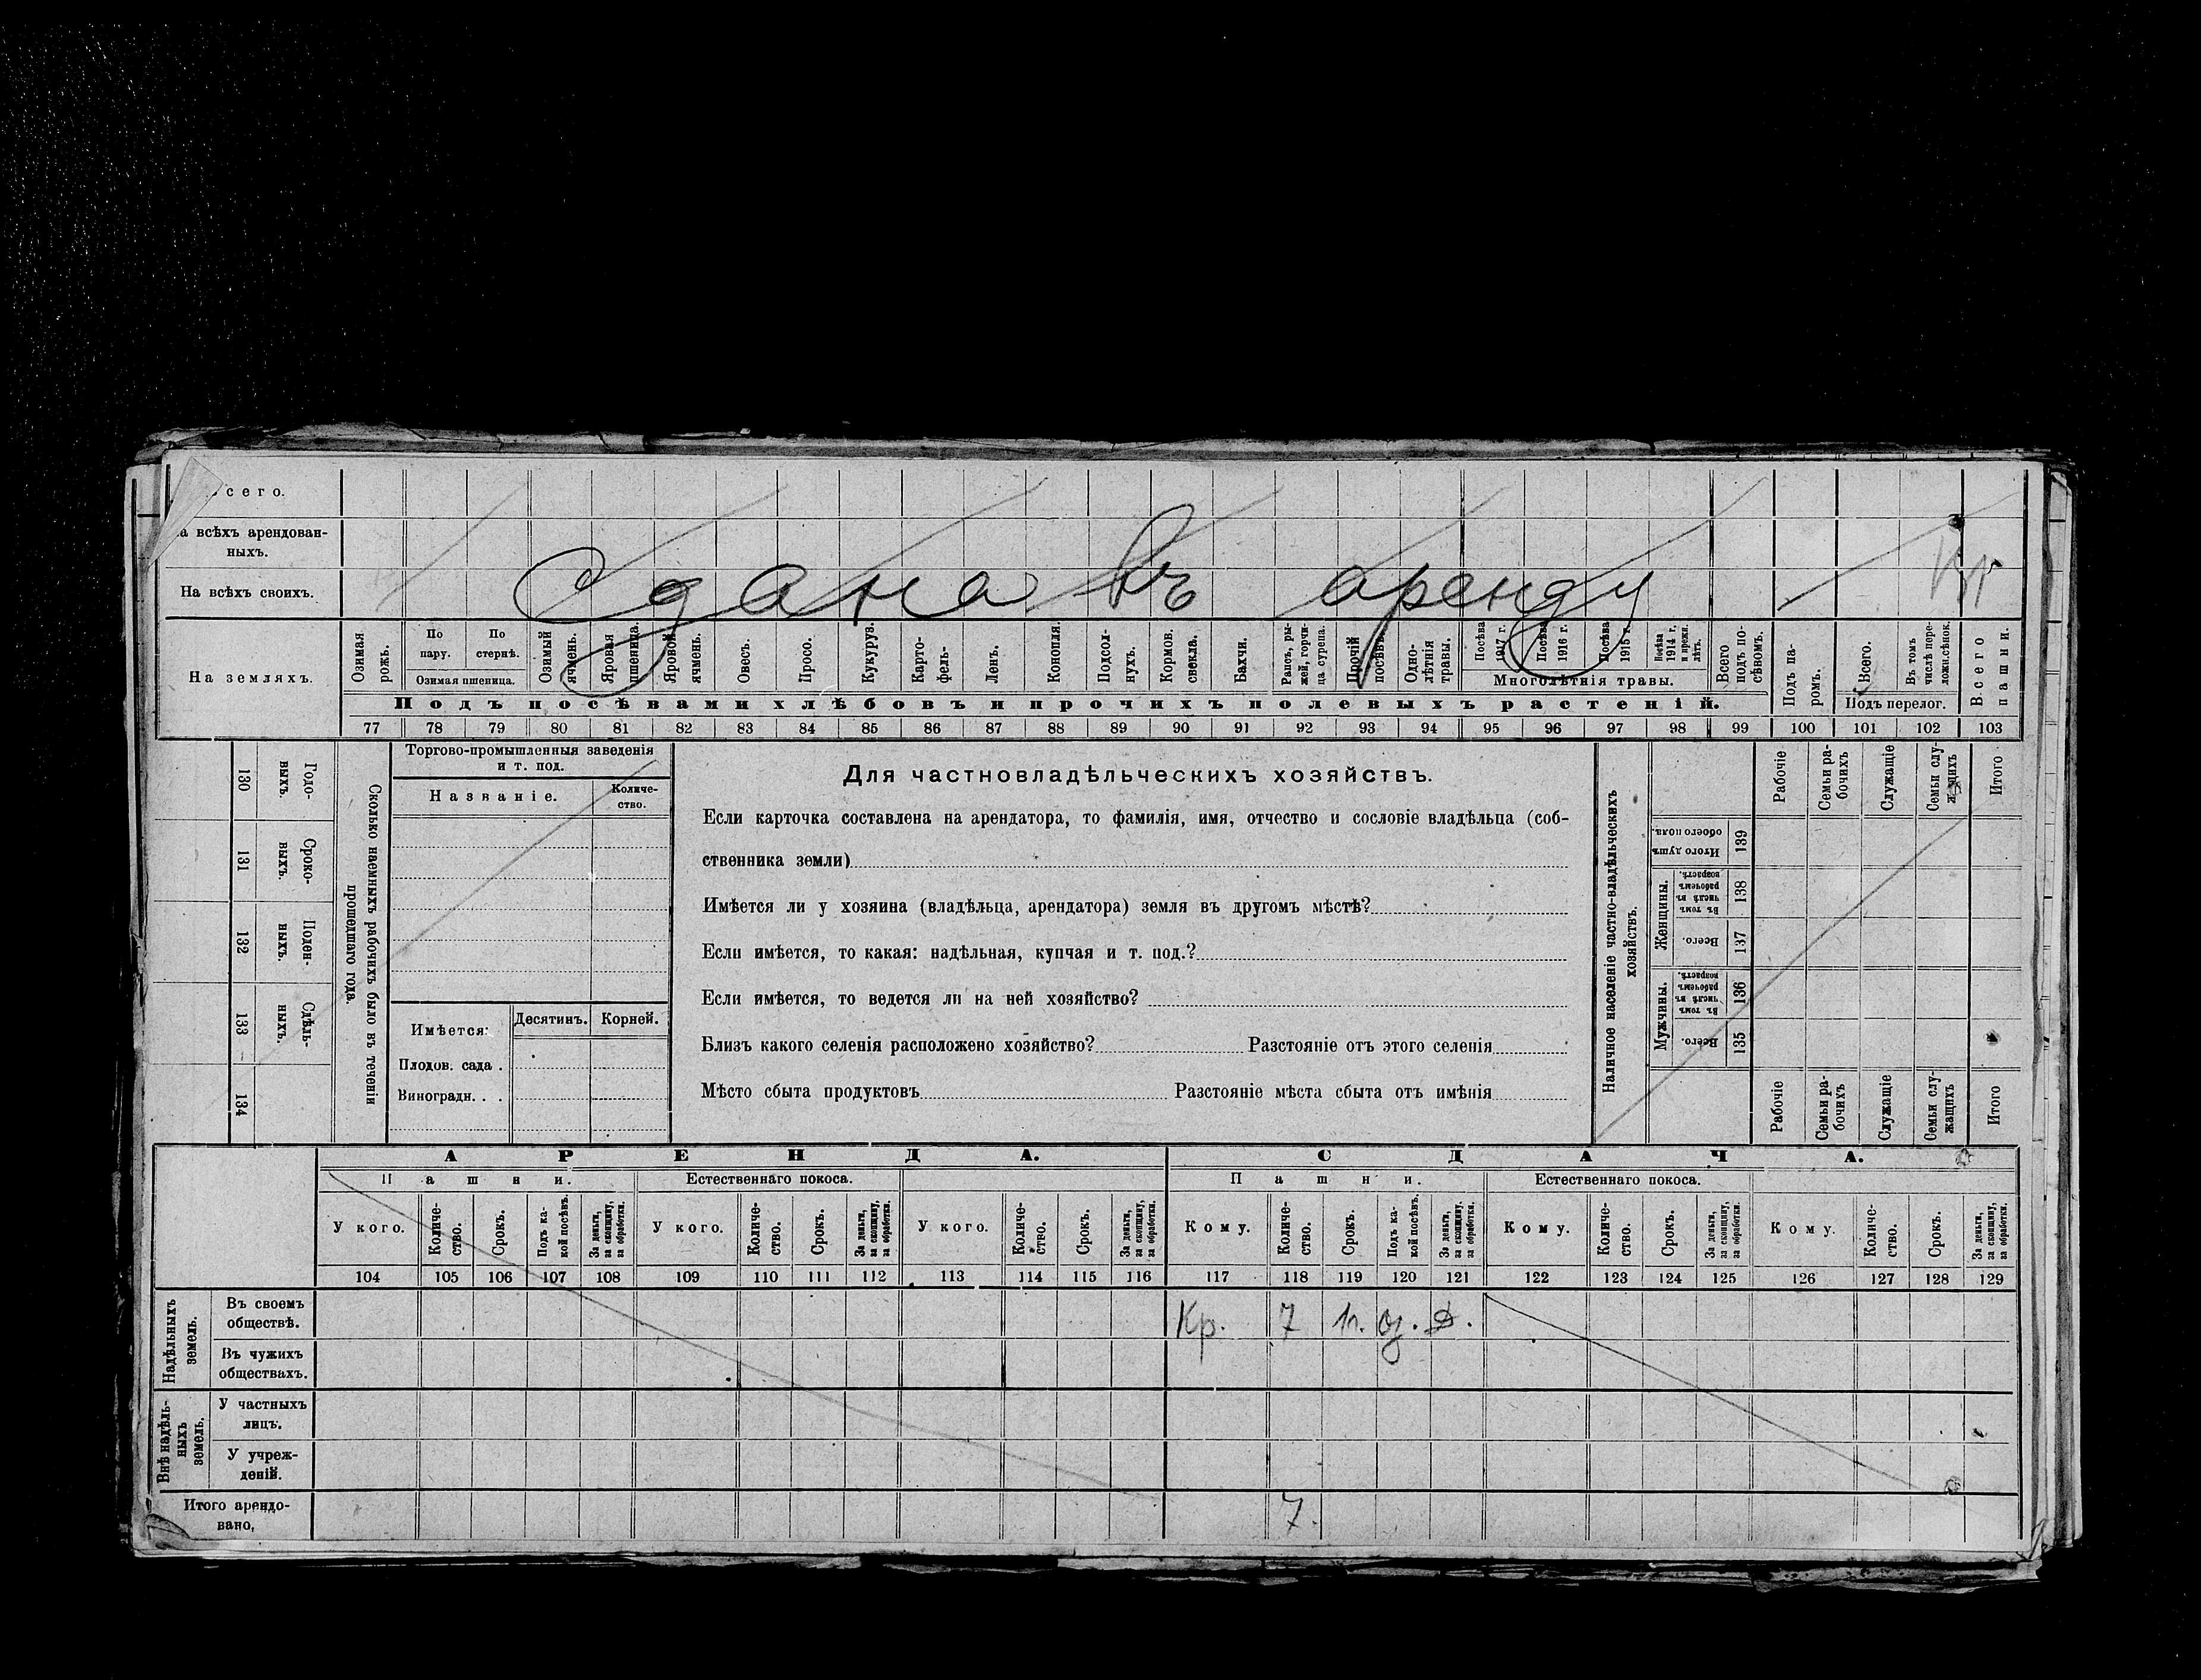 Всего.
На всѣхъ арендован-
ныхъ.
На всѣхъ своихъ.
Сдана въ аренду
Кр
На земляхъ.
Озимая рожь.
По пару.
По стернѣ.
Озимая пшеница.
Озимый ячмень.
Яровая пшеница.
Яровой ячмень.
Овесъ.
Просо.
Кукуруз.
Карто-фель-
Ленъ.
Конопля.
Подсол-нухъ.
Кормов. свекла.
Бахчи.
Рапсъ, ры-жей, горчи-ца сурепа.
Прочій посѣвъ.
Одно-лѣтнія травы.
Посѣва 1917 г.
Посѣва 1916 г.
Посѣва 1915 г.
Посѣва 1914 г. и прежн. лѣтъ.
Многолѣтнія травы.
Всего подъ по-сѣвомъ.
Подъ па-ромъ.
Всего.
Въ томъ числѣ пере-ложн.сѣнок.
Подъ перелог.
Всего пашни.
Подъ посѣвами хлѣбовъ и прочихъ полевыхъ растеній.
77 78 79 80 81 82 83 84 85 86 87 88 89 90 91 92 93 94 95 96 97 98 99 100 101 102 103
130 Годо-выхъ.
131 Сроко-выхъ.
132 Поден-ныхъ.
133 Сдѣль-ныхъ.
134
Сколько наемныхъ рабочихъ было въ теченіи прошедшаго года.
Торгово-промышленныя заведенія
и т. под.
Названіе.
Количе-ство.
Имѣется:
Десятинъ.
Корней.
Плодов. сада .
Виноградн. . .
Для частновладѣльческихъ хозяйствъ.
Если карточка составлена на арендатора, то фамилія, имя, отчество и сословіе владѣльца (соб-
ственника земли)
Имѣется ли у хозяина (владѣльца, арендатора) земля въ другомъ мѣстѣ?
Если имѣется, то какая: надѣльная, купчая и т. под.?
Если имѣется, то ведется ли на ней хозяйство?
Близъ какого селенія расположено хозяйство? Разстояніе отъ этого селенія
Мѣсто сбыта продуктовъ Разстояніе мѣста сбыта отъ имѣнія
Наличное населеніе частно-владѣльческихъ хозяйствъ.
Рабочіе
Семьи ра-бочихъ
Служащіе
Семьи слу-жащихъ
Итого
Итого душъ обоего пола. 139
Женщины.
Въ томъ числѣ въ рабочемъ возрастѣ. 138
Всего. 137
Мужчины.
Въ томъ числѣ въ рабочемъ возрастѣ. 136
Всего. 135
Рабочіе
Семьи ра-бочихъ
Служащіе
Семьи слу-жащихъ
Итого
АРЕНДА.
СДАЧА.
Пашни.
Естественнаго покоса.
Пашни.
Естественнаго покоса.
У кого.
Количе-ство.
Срокъ.
Подъ ка-кой посѣвъ.
За деньги, за скопщину, за обработки.
У кого.
Количе-ство.
Срокъ.
За деньги, за скопщину, за обработки.
У кого.
Количе-ство.
Срокъ.
За деньги, за скопщину, за обработки.
Кому.
Количе-ство.
Срокъ.
Подъ ка-кой посѣвъ.
За деньги, за скопщину, за обработки.
Кому.
Количе-ство.
Срокъ.
За деньги, за скопщину, за обработки.
Кому.
Количе-ство.
Срокъ.
За деньги, за скопщину, за обработки.
104 105 106 107 108 109 110 111 112 113 114 115 116 117 118 119 120 121 122 123 124 125 126 127 128 129
Надѣльныхъ земель.
Въ своемъ
обществѣ.
Кр. 7 1г. оз. Д.
Въ чужихъ
обществахъ.
Внѣ надѣль-ныхъ земель.
У частныхъ
лицъ.
У учреж-
деній.
Итого арендо-
вано,
7.